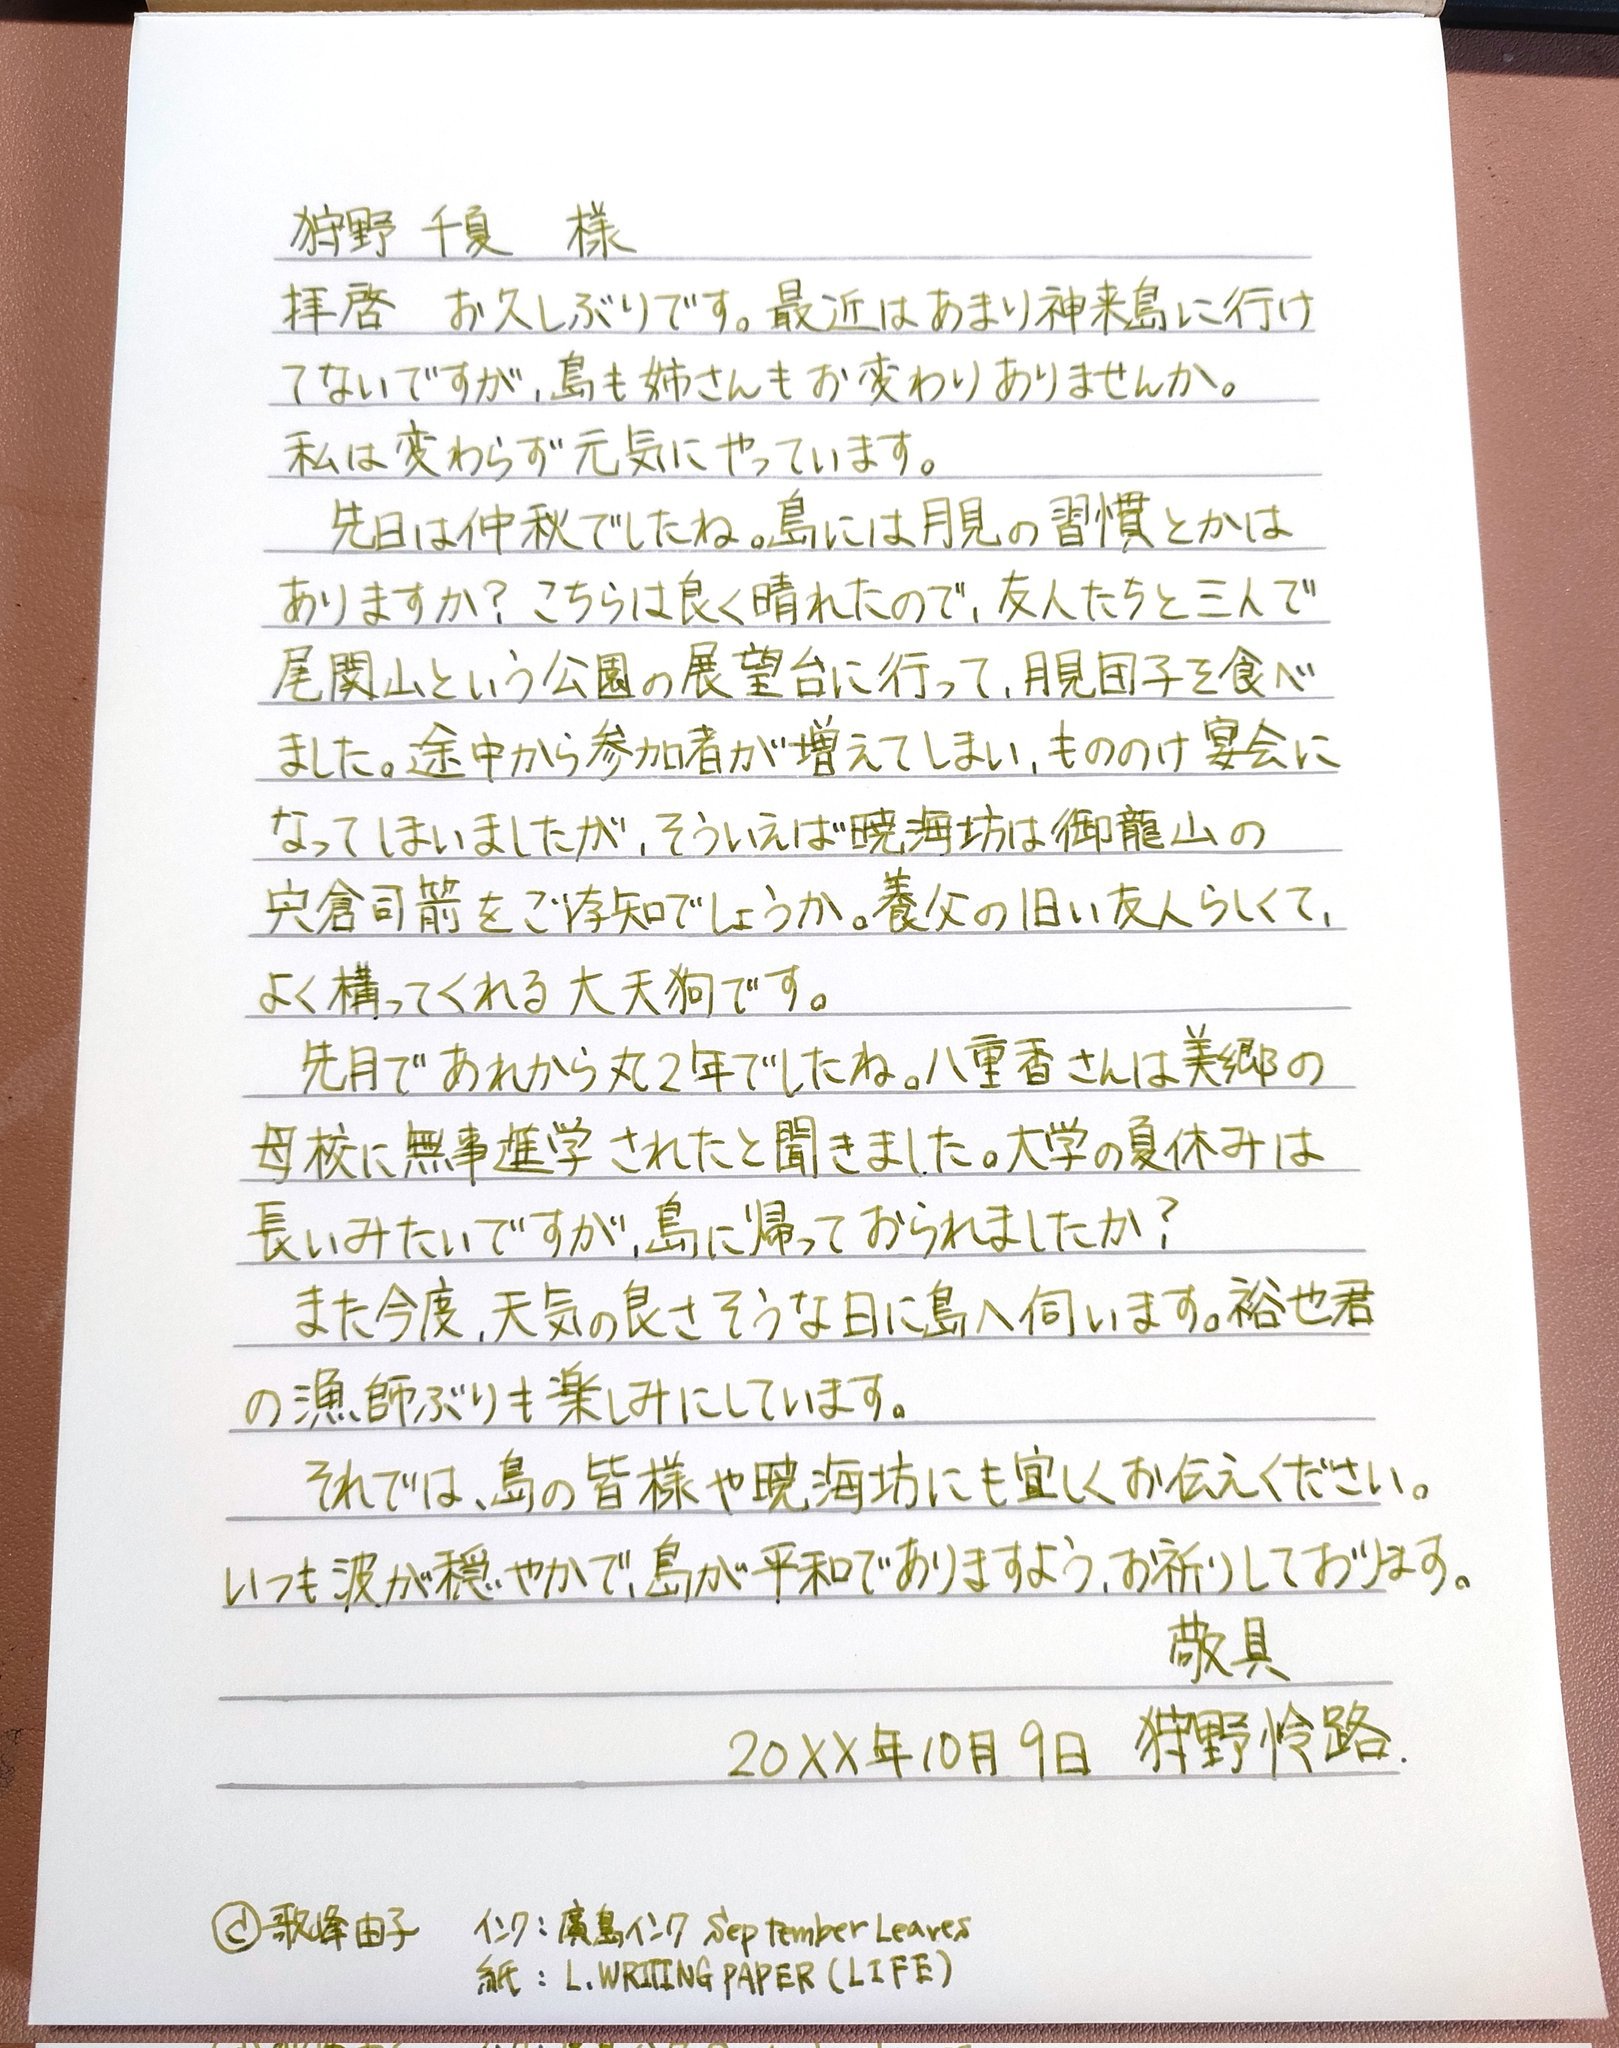 狩野 千夏　様
拝啓　お久しぶりです。最近はあまり神来島に行け
てないですが、島も姉さんもお変わりありませんか。
私は変わらず元気にやっています。
先日は仲秋でしたね。島には月見の習慣とかは
ありますか？こちらは良く晴れたので、友人たちと三人で
尾関山という公園の展望台に行って、月見団子を食べ
ました。途中から参加者が増えてしまい、もののけ宴会に
なってしまいましたが、そういえば暁海坊は御龍山の
宍倉司箭をご存知でしょうか。養父の旧い友人らしくて、
よく構ってくれる大天狗です。
先月であれから丸2年でしたね。八重香さんは美郷の
母校に無事進学されたと聞きました。大学の夏休みは
長いみたいですが、島に帰っておられましたか？
また今度、天気の良さそうな日に島へ伺います。裕也君
の漁師ぶりも楽しみにしています。
それでは、島の皆様や暁海坊にも宜しくお伝えください。
いつも波が穏やかで、島が平和でありますよう、お祈りしております。
敬具
20XX年10月9日　狩野怜路.
©歌峰由子　インク：廣島インク September Leaves
紙：L.WRITING PAPER(LIFE)